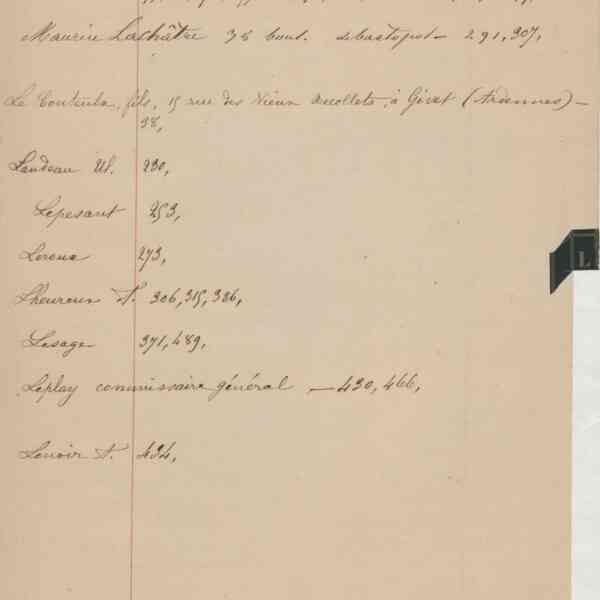 Maurice Lachâtre 38 boul. Sébastopol — 291, 307,
fils, 15 rue des Vieux Recollets, à Givet (Ardennes) —
38,
Landeau 230,
Lepesant 253,
Leroux 273,
Lheureux A. 306, 315, 386,
Lesage 371, 489,
Leplay commissaire général — 430, 466,
Lenoir A. 434,
L